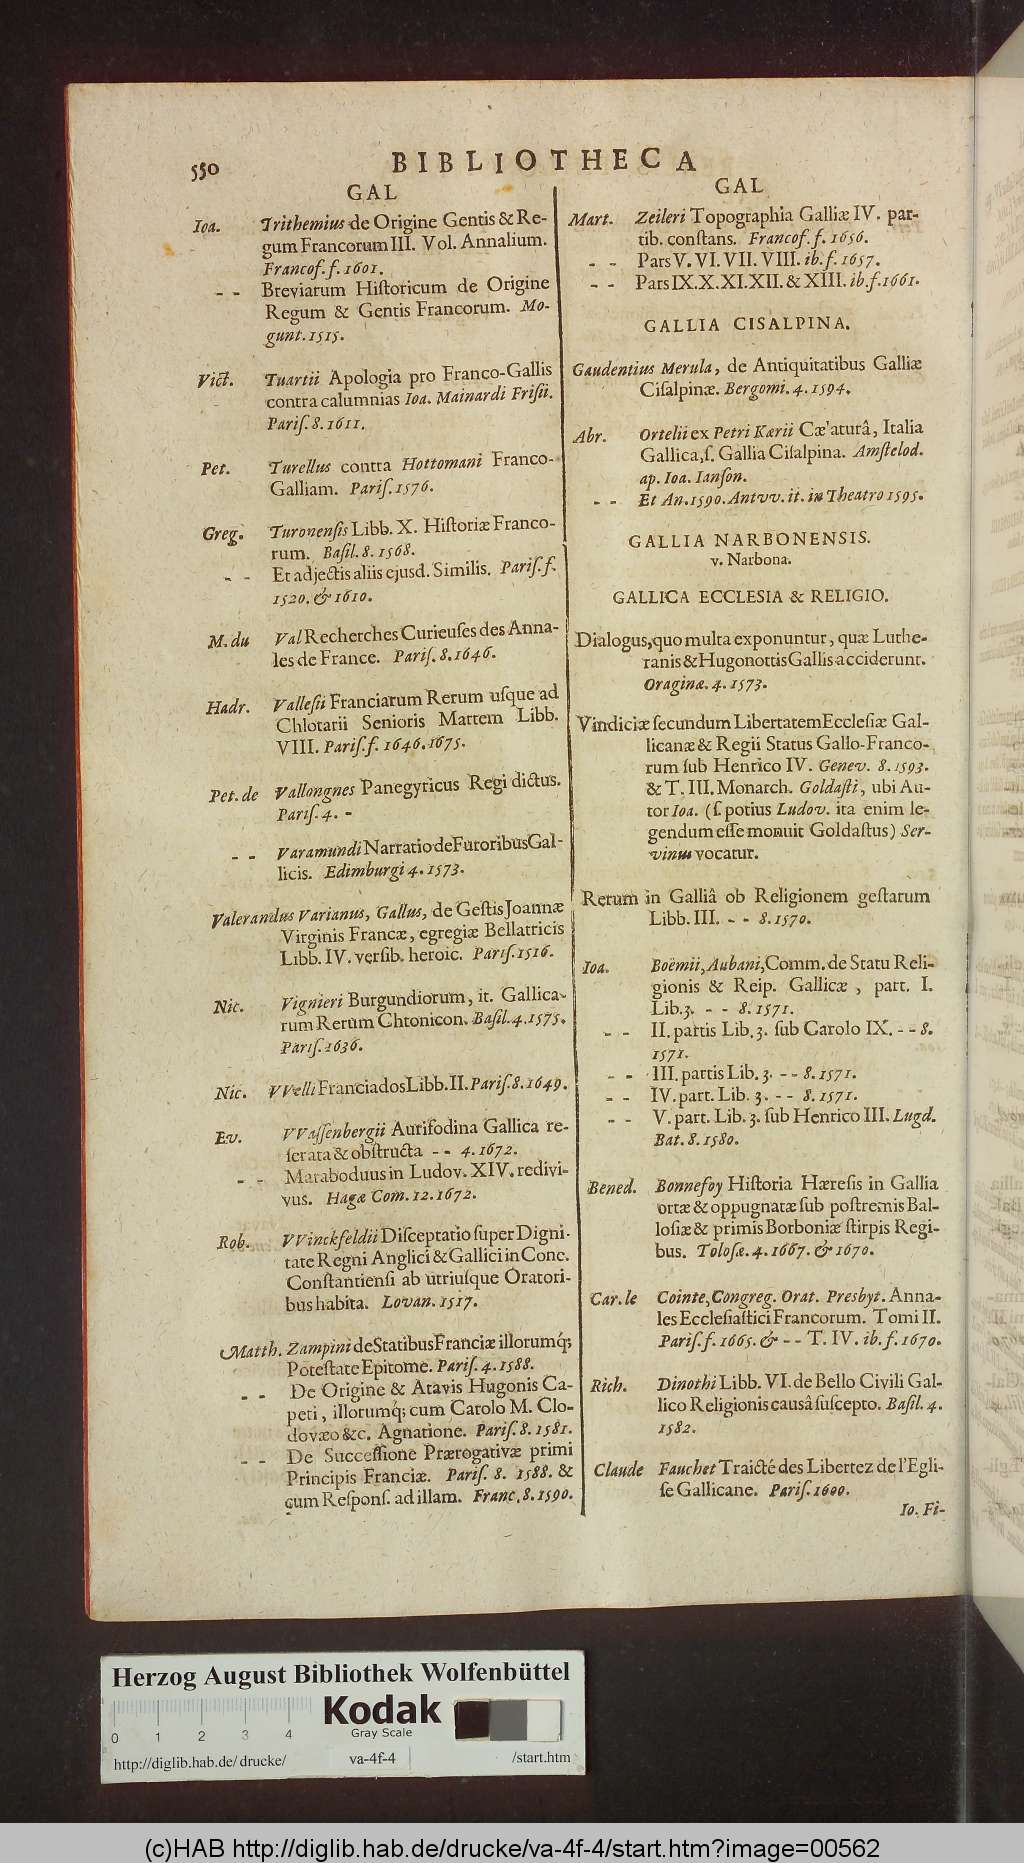 550
BIBLIOTHECA
GAL
Ioa. Trithemius de Origine Gentis & Re-
gum Francorum III. Vol. Annalium.
Francof. f. 1601.
- - Breviarum Hiſtoricum de Origine
Regum & Gentis Francorum. Mo-
gunt. 1515.
Vict. Tuartii Apologia pro Franco-Gallis
contra calumnias Ioa. Mainardi Friſii.
Pariſ. 8. 1611.
Pet. Turellus contra Hottomani Franco-
Galliam. Pariſ. 1576.
Greg. Turonenſis Libb. X. Hiſtoriæ Franco-
rum. Baſil. 8. 1568.
- - Et adjectis aliis ejusd. Similis. Pariſ. f.
1520. & 1610.
M. du Val Recherches Curieuſes des Anna-
les de France. Pariſ. 8. 1646.
Hadr. Valleſii Franciarum Rerum uſque ad
Chlotarii Senioris Martem Libb.
VIII. Pariſ. f. 1646. 1675.
Pet. de Vallongnes Panegyricus Regi dictus.
Pariſ. 4. -
- - Varamundi Narratio de Furoribus Gal-
licis. Edimburgi 4. 1573.
Valerandus Varianus, Gallus, de Geſtis Joannæ
Virginis Francæ, egregiæ Bellatricis
Libb. IV. verſib. heroic. Pariſ. 1516.
Nic. Vignieri Burgundiorum, it. Gallica-
rum Rerum Chronicon. Baſil. 4. 1575.
Pariſ. 1636.
Nic. VVelli Franciados Libb. II. Pariſ. 8. 1649.
Ev. VVaſſenbergii Aurifodina Gallica re-
ſerata & obſtructa - - 4. 1672.
- - Maraboduus in Ludov. XIV. redivi-
vus. Hagæ Com. 12. 1672.
Rob. VVinckfeldii Diſceptatio ſuper Digni-
tate Regni Anglici & Gallici in Conc.
Conſtantienſi ab utriuſque Oratori-
bus habita. Lovan. 1517.
Matth. Zampini de Statibus Franciæ illorumq;
Poteſtate Epitome. Pariſ. 4. 1588.
- - De Origine & Atavis Hugonis Ca-
peti, illorumq; cum Carolo M. Clo-
dovæo &c. Agnatione. Pariſ. 8. 1581.
- - De Succeſſione Prærogativæ primi
Principis Franciæ. Pariſ. 8. 1588. &
cum Reſponſ. ad illam. Franc. 8. 1590.
GAL
Mart. Zeileri Topographia Galliæ IV. par-
tib. conſtans. Francof. f. 1656.
- - Pars V. VI. VII. VIII. ib. f. 1657.
- - Pars IX. X. XI. XII. & XIII. ib. f. 1661.
GALLIA CISALPINA.
Gaudentius Merula, de Antiquitatibus Galliæ
Ciſalpinæ. Bergomi. 4. 1594.
Abr. Ortelii ex Petri Kærii Cæ'aturâ, Italia
Gallica, ſ. Gallia Ciſalpina. Amſtelod.
ap. Ioa. Ianſon.
- - Et An. 1590. Antvv. it. in Theatro 1595.
GALLIA NARBONENSIS.
v. Narbona.
GALLICA ECCLESIA & RELIGIO.
Dialogus, quo multa exponuntur, quæ Luthe-
ranis & Hugonottis Gallis acciderunt.
Oraginæ. 4. 1573.
Vindiciæ ſecundum Libertatem Eccleſiæ Gal-
licanæ & Regii Status Gallo-Franco-
rum ſub Henrico IV. Genev. 8. 1593.
& T. III. Monarch. Goldaſti, ubi Au-
tor Ioa. (ſ. potius Ludov. ita enim le-
gendum eſſe monuit Goldaſtus) Ser-
vinus vocatur.
Rerum in Galliâ ob Religionem geſtarum
Libb. III. - - 8. 1570.
Ioa. Boëmii, Aubani, Comm. de Statu Reli-
gionis & Reip. Gallicæ, part. I.
Lib. 3. - - 8. 1571.
- - II. partis Lib. 3. ſub Carolo IX. - - 8.
1571.
- - III. partis Lib. 3. - - 8. 1571.
- - IV. part. Lib. 3. - - 8. 1571.
- - V. part. Lib. 3. ſub Henrico III. Lugd.
Bat. 8. 1580.
Bened. Bonnefoy Hiſtoria Hæreſis in Gallia
ortæ & oppugnatæ ſub poſtremis Bal-
loſiæ & primis Borboniæ ſtirpis Regi-
bus. Toloſæ. 4. 1667. & 1670.
Car. le Cointe, Congreg. Orat. Presbyt. Anna-
les Eccleſiaſtici Francorum. Tomi II.
Pariſ. f. 1665. & - - T. IV. ib. f. 1670.
Rich. Dinothi Libb. VI. de Bello Civili Gal-
lico Religionis causâ ſuſcepto. Baſil. 4.
1582.
Claude Fauchet Traicté des Libertez de l'Egli-
ſe Gallicane. Pariſ. 1600.
Io. Fi-
Herzog August Bibliothek Wolfenbüttel
Kodak
Gray Scale
0 1 2 3 4
http://diglib.hab.de/drucke/ va-4f-4 /start.htm
(c)HAB http://diglib.hab.de/drucke/va-4f-4/start.htm?image=00562